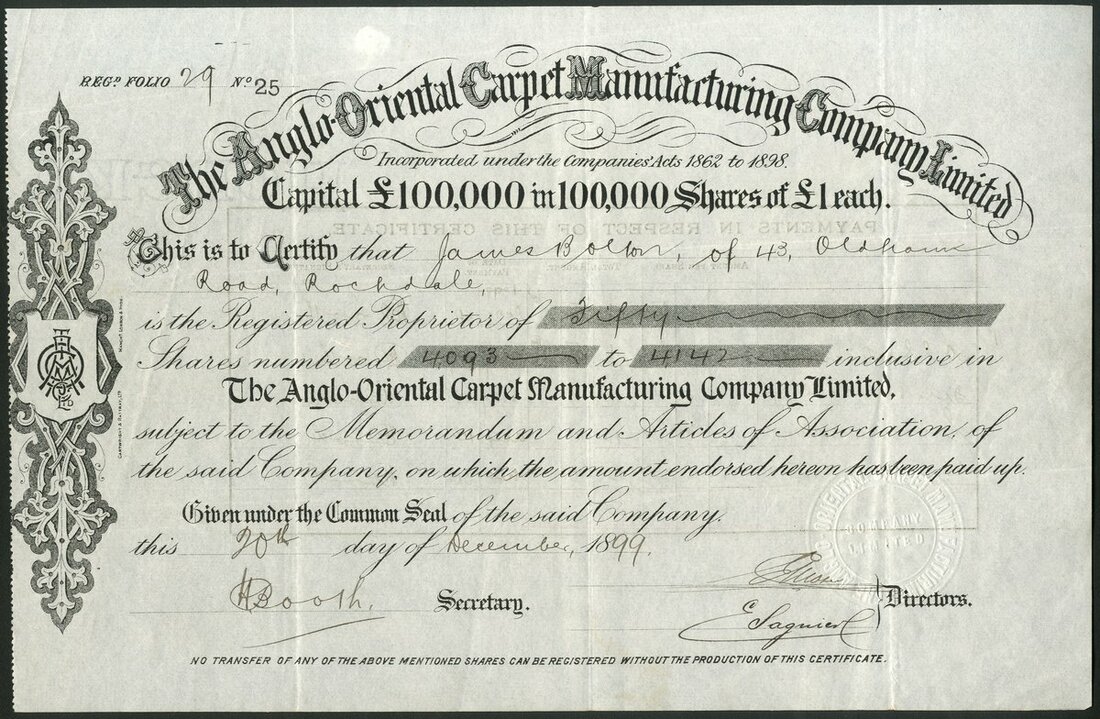 REGD. FOLIO 29 No. 25
The Anglo-Oriental Carpet Manufacturing Company Limited
Incorporated under the Companies' Acts 1862 to 1898.
Capital £100,000 in 100,000 Shares of £1 each.
PAYMENTS IN RESPECT OF THIS CERTIFICATE.
This is to Certify that James Bolton, of 43, Oldham
Road, Rochdale,
is the Registered Proprietor of Fifty
Shares numbered 4093 to 4142 inclusive in
The Anglo-Oriental Carpet Manufacturing Company Limited,
subject to the Memorandum and Articles of Association, of
the said Company, on which the amount endorsed hereon has been paid up.
Given under the Common Seal of the said Company,
this 20th day of December, 1899.
COMPANY
LIMITED
HBooth. Secretary.
E Sagnier Directors.
NO TRANSFER OF ANY OF THE ABOVE MENTIONED SHARES CAN BE REGISTERED WITHOUT THE PRODUCTION OF THIS CERTIFICATE.